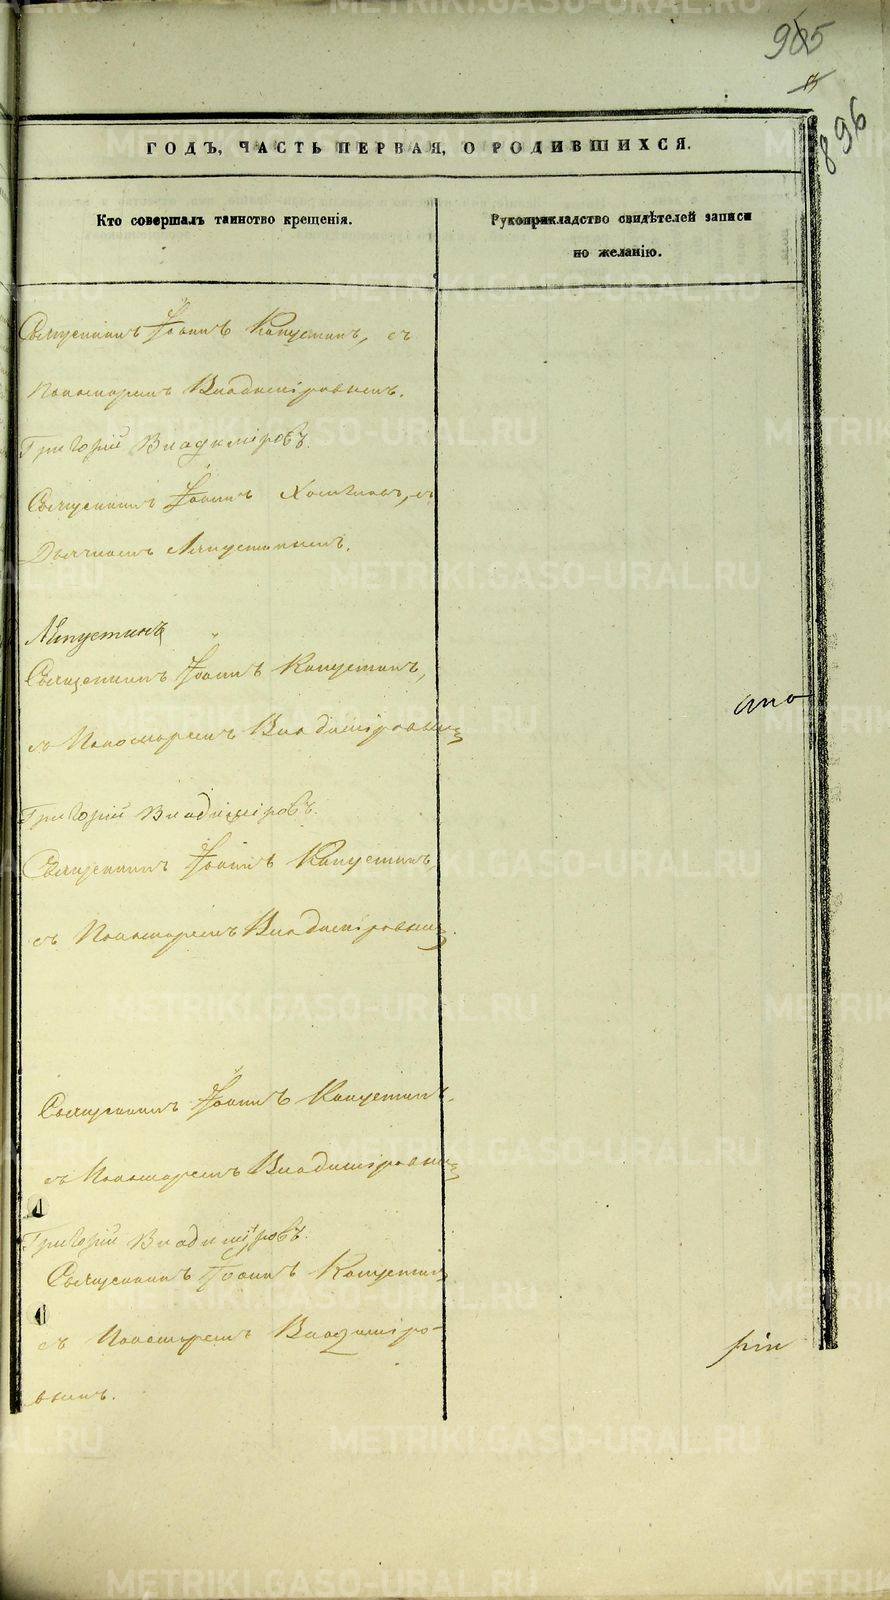 905
896
ГОДЪ, ЧАСТЬ ПЕРВАЯ, О РОДИВШИХСЯ.
Кто совершалъ таинство крещенія.
Рукоприкладство свидѣтелей записи
по желанію.
Священникъ Іоаннъ Капустинъ, съ
Пономаремъ Владиміровымъ.
Григорій Владиміровъ.
Священникъ Іоаннъ съ
Дьячкомъ
Священникъ Іоаннъ Капустинъ,
съ Пономаремъ Владиміровымъ
Григорій Владиміровъ.
Священникъ Іоаннъ Капустинъ,
съ Пономаремъ Владиміровымъ.
Священникъ Іоаннъ Капустинъ,
съ Пономаремъ Владиміровымъ
Григорій Владиміровъ.
Священникъ Іоаннъ Капустинъ
съ Пономаремъ Владиміро-
вымъ.
METRIKI.GASO-URAL.RU